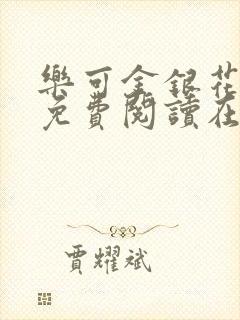 樂可金銀花
免費閱讀在
賈耀斌